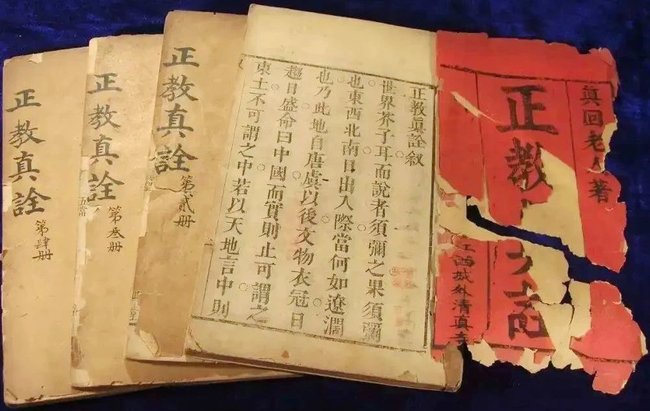 眞回老人著
正教
江西城外清真寺
正教眞詮叙
世界芥子耳而說者須彌之果須彌
也東西北南日出入際當何如遼濶
也乃此地自唐虞以後文物衣冠日
趨日盛命曰中國而實則止可謂之
東土不可謂之中若以天地言中則
正教真詮
第貳册
正教真詮
第叁册
正教真詮
第肆册